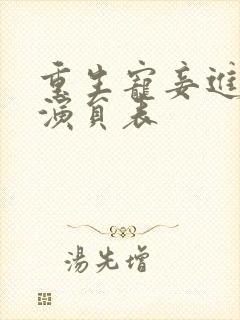 重生寵妾進
演員表
湯先增